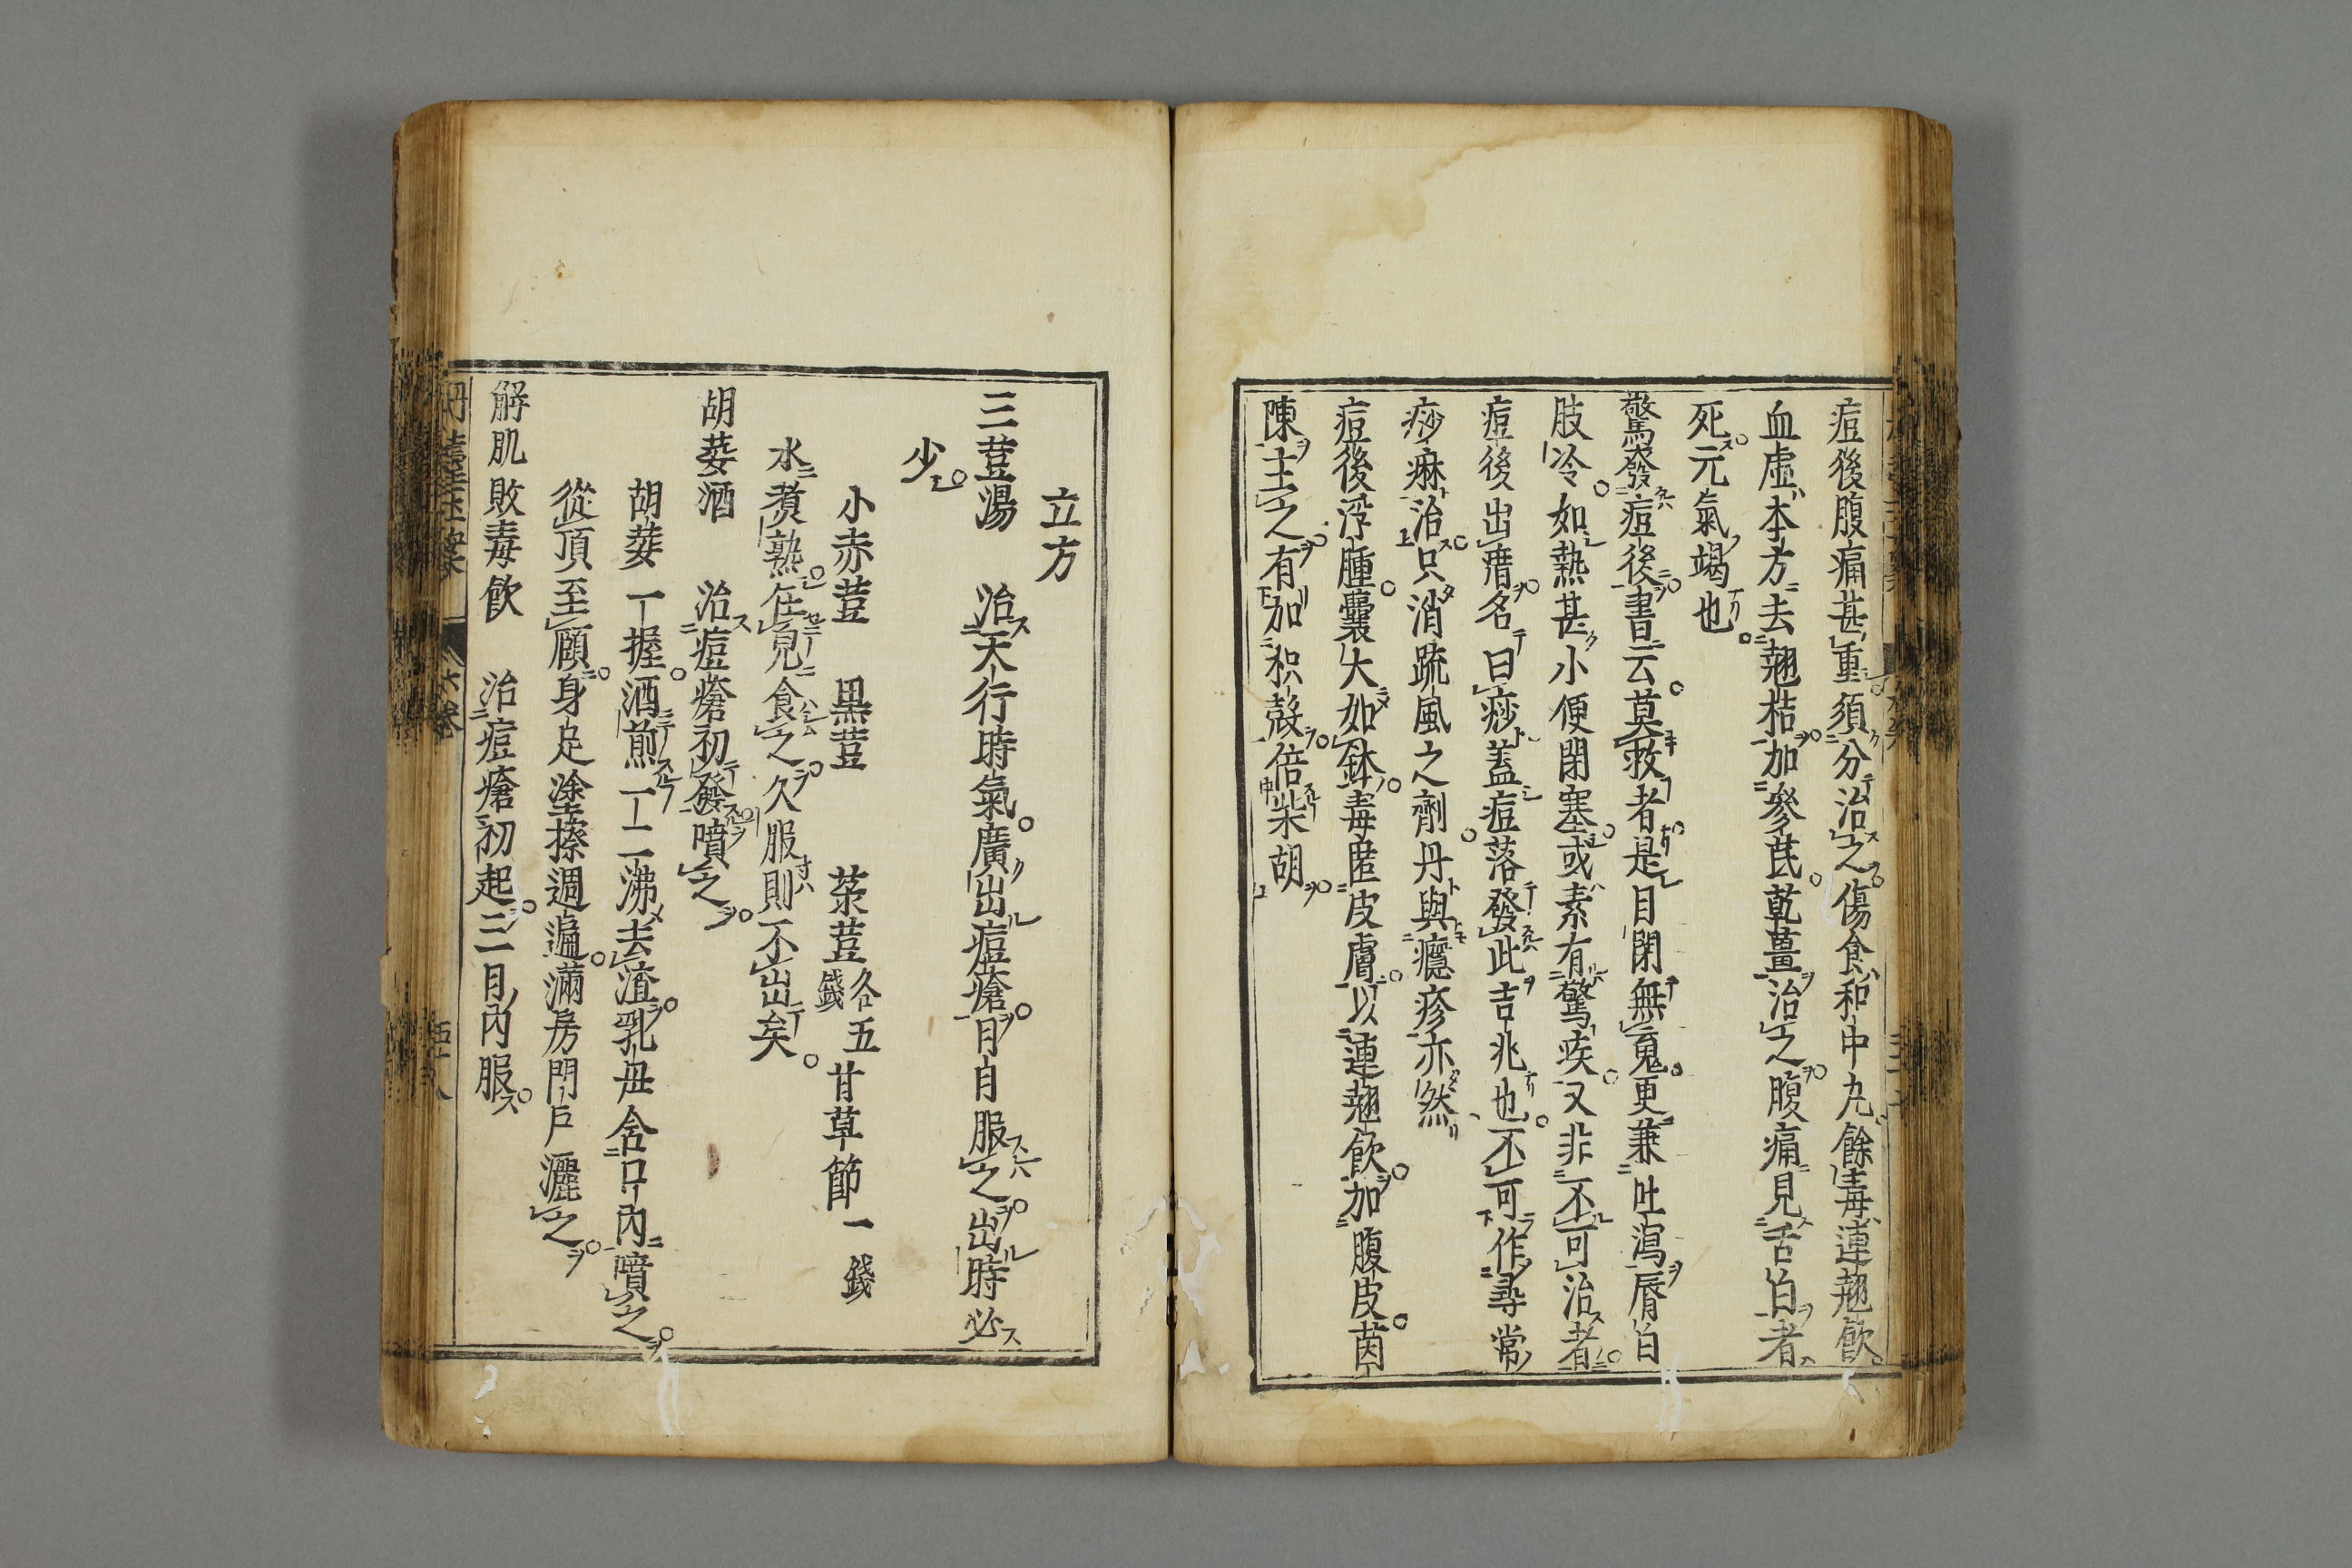 痘後腹痛甚重須分治之傷食和中丸餘毒連翹飲
血虛本方去翹桔加參芪乾薑治之腹痛見舌白者
死元氣竭也
驚發痘後書云莫救者是目閉無䰟更兼吐瀉唇白
肢冷如熱甚小便閉塞或素有驚疾又非不可治者
痘後出瘄名曰痧蓋痘落發此吉兆也不可作尋常
痧痳治只消疏風之劑丹與癮疹亦然
痘後浮腫囊大如鉢毒匿皮膚以連翹飲加腹皮茵
陳主之有加枳殼倍柴胡
立方
三荳湯 治天行時氣廣出痘瘡月自服之出時必
少
小赤荳 黒荳 菉荳各五錢 甘草節一錢
水煑熟任見食之久服則不出矣
胡荽酒 治痘瘡初發噴之
胡荽一握酒煎一二沸去渣乳毋含口內噴之
從頂至頤身足塗搽週遍滿房門戶灑之
解肌敗毒飲 治痘瘡初起三日內服
六卷